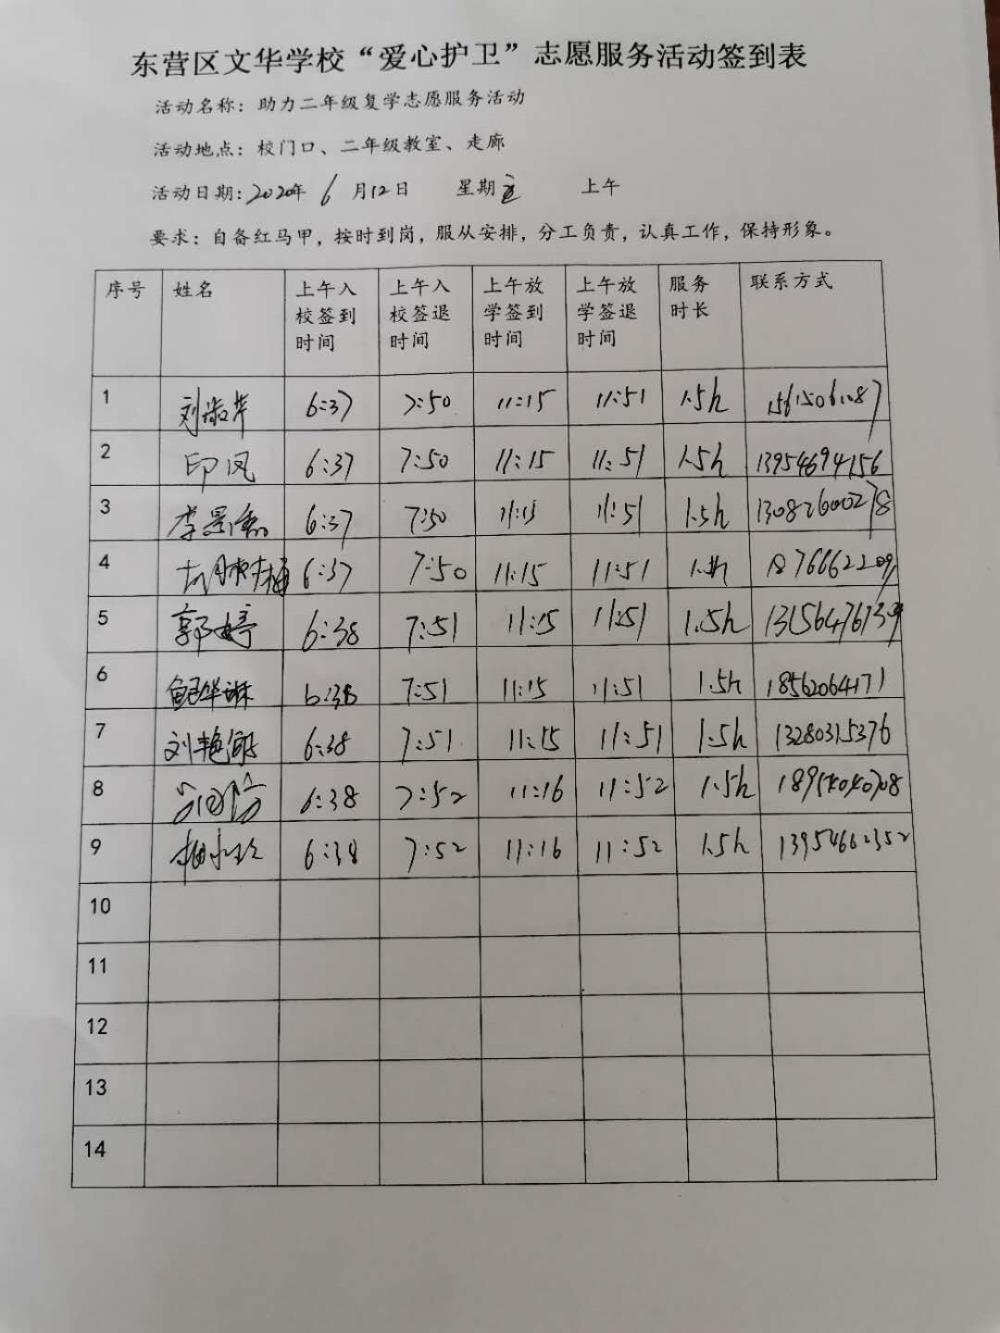 东营区文华学校“爱心护卫”志愿服务活动签到表
活动名称：助力二年级复学志愿服务活动
活动地点：校门口、二年级教室、走廊
活动日期：2020年 6 月12日 星期五 上午
要求：自备红马甲，按时到岗，服从安排，分工负责，认真工作，保持形象。
序号 姓名 上午入校签到时间 上午入校签退时间 上午放学签到时间 上午放学签退时间 服务时长 联系方式
1 6:37 7:50 11:15 11:51 1.5h
2 印凤 6:37 7:50 11:15 11:51 1.5h 13954694156
3 6:37 7:50 11:15 11:51 1.5h 13082600278
4 6:37 7:50 11:15 11:51
5 郭婷 6:38 7:51 11:15 11:51 1.5h
6 6:38 7:51 11:15 11:51 1.5h 18562064171
7 6:38 7:51 11:15 11:51 1.5h 13280315376
8 6:38 7:52 11:16 11:52 1.5h
9 6:38 7:52 11:16 11:52 1.5h 13954662352
10
11
12
13
14